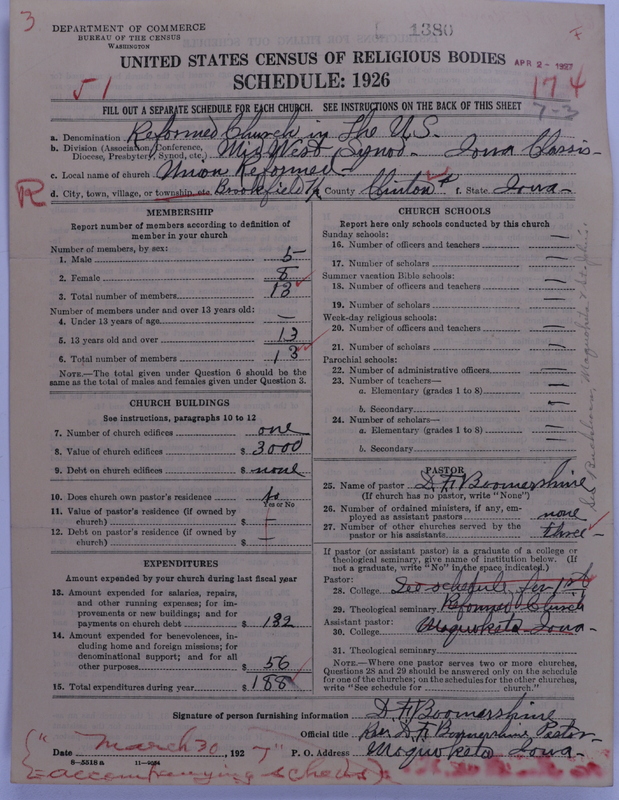 3
DEPARTMENT OF COMMERCE
BUREAU OF THE CENSUS
WASHINGTON
1380
UNITED STATES CENSUS OF RELIGIOUS BODIES
APR 2 - 1927
SCHEDULE: 1926
51
174
7-3
FILL OUT A SEPARATE SCHEDULE FOR EACH CHURCH. SEE INSTRUCTIONS ON THE BACK OF THIS SHEET
a. Denomination Reformed Church in The U.S.
b. Division (Association, Conference, Diocese, Presbytery, Synod, etc.) Mid West Synod - Iowa Classis -
c. Local name of church Union Reformed -
R
d. City, town, village, or township, etc. Brookfield e. County Clinton f. State Iowa -
MEMBERSHIP
Report number of members according to definition of member in your church
Number of members, by sex:
1. Male 5
2. Female 8
3. Total number of members 13
Number of members under and over 13 years old:
4. Under 13 years of age —
5. 13 years old and over 13
6. Total number of members 13
NOTE.—The total given under Question 6 should be the same as the total of males and females given under Question 3.
CHURCH BUILDINGS
See instructions, paragraphs 10 to 12
7. Number of church edifices one
8. Value of church edifices $ 3000
9. Debt on church edifices $ none
10. Does church own pastor's residence No
Yes or No
11. Value of pastor's residence (if owned by church) $ —
12. Debt on pastor's residence (if owned by church) $ —
EXPENDITURES
Amount expended by your church during last fiscal year
13. Amount expended for salaries, repairs, and other running expenses; for improvements or new buildings; and for payments on church debt $ 132
14. Amount expended for benevolences, including home and foreign missions; for denominational support; and for all other purposes $ 56
15. Total expenditures during year $ 188
CHURCH SCHOOLS
Report here only schools conducted by this church
Sunday schools:
16. Number of officers and teachers —
17. Number of scholars —
Summer vacation Bible schools:
18. Number of officers and teachers —
19. Number of scholars —
Week-day religious schools:
20. Number of officers and teachers —
21. Number of scholars —
Parochial schools:
22. Number of administrative officers —
23. Number of teachers—
a. Elementary (grades 1 to 8) —
b. Secondary —
24. Number of scholars—
a. Elementary (grades 1 to 8) —
b. Secondary —
PASTOR
25. Name of pastor D. F. Boomershine
(If church has no pastor, write "None")
26. Number of ordained ministers, if any, employed as assistant pastors none
27. Number of other churches served by the pastor or his assistants three -
If pastor (or assistant pastor) is a graduate of a college or theological seminary, give name of institution below. (If not a graduate, write "No" in the space indicated.)
Pastor:
28. College See schedule for 1st
29. Theological seminary Reformed Church
Assistant pastor:
30. College Maquoketa Iowa -
31. Theological seminary
NOTE.—Where one pastor serves two or more churches, Questions 28 and 29 should be answered only on the schedule for one of the churches; on the schedules for the other churches, write "See schedule for church."
Signature of person furnishing information D. F. Boomershine
Official title Rev. D. F. Boomershine, Pastor
Date March 30, 1927 P. O. Address Maquoketa Iowa -
8-5518 a
accompanying scheds